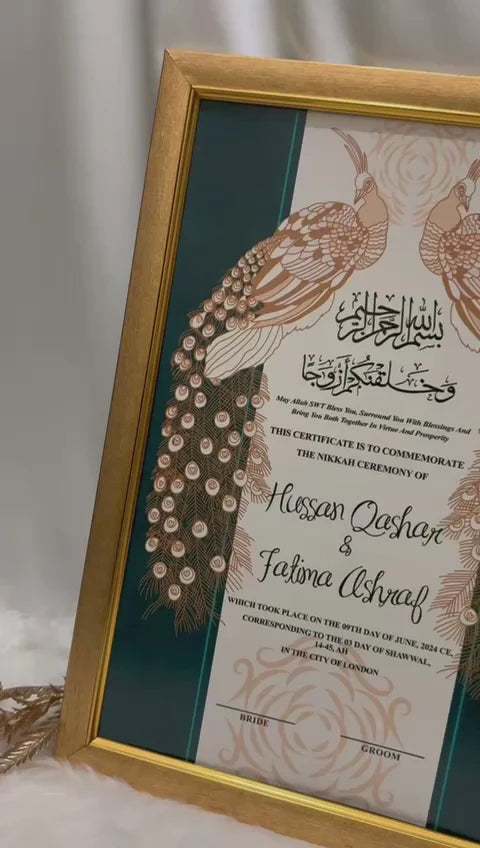 بسم الله الرحمن الرحيم
وَخَلَقْنَاكُمْ أَزْوَاجًا
May Allah SWT Bless You, Surround You With Blessings And
Bring You Both Together In Virtue And Prosperity
THIS CERTIFICATE IS TO COMMEMORATE
THE NIKKAH CEREMONY OF
Hussan Qashar
&
Fatima Ashraf
WHICH TOOK PLACE ON THE 09TH DAY OF JUNE, 2024 CE,
CORRESPONDING TO THE 03 DAY OF SHAWWAL,
14-45, AH
IN THE CITY OF LONDON
BRIDE
GROOM